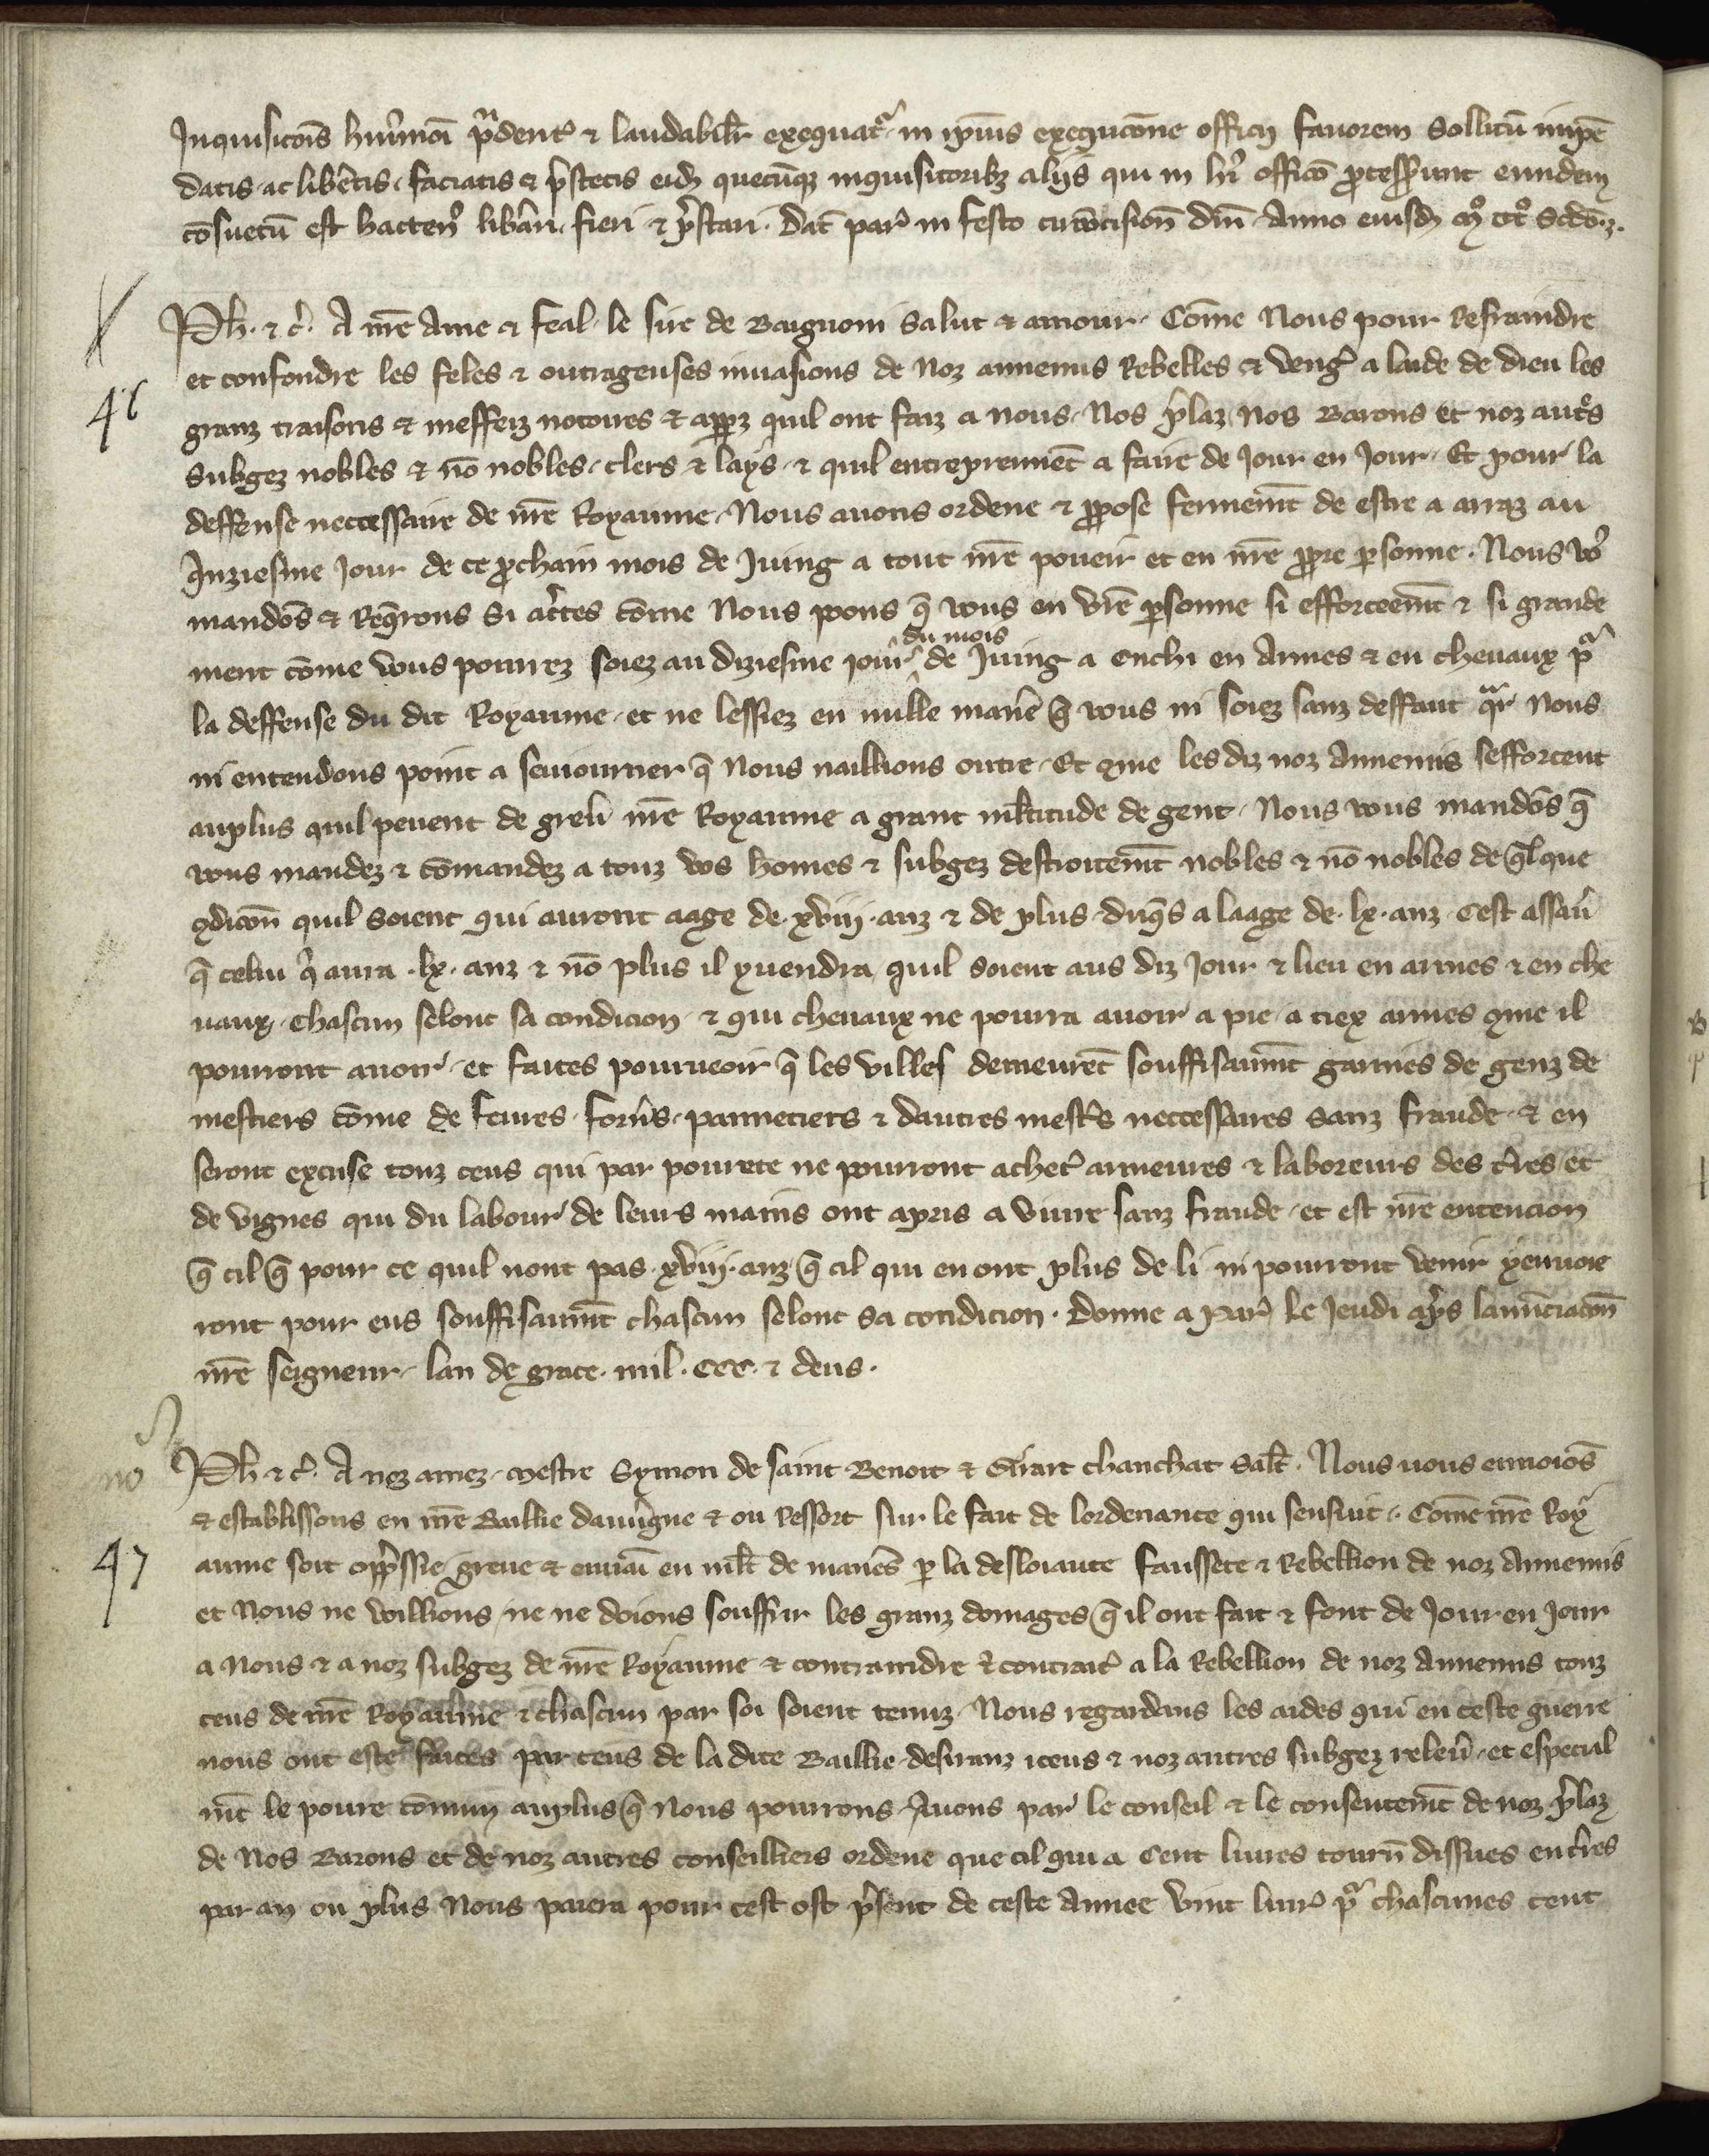 Inquisicōis hm̄moi prudent̉ ⁊ laudabilr̄ exequat̉ in ip̄ius exequcōne officij fauorem sollitū impē
datis ac libētis faciatis et p̉stetis eid̄ quecūq; inquisitorib; alijs qui in h̉ officō p̄cesserunt eundem
cōsuetū est hacten9 libari fieri ⁊ p̉stari. Dat̄ par̉ in festo circūcision̄ dn̄i Anno eiusd̄ mº ccc̊ scdō.
Ph. ⁊ c̉. A nr̄e ame et feal le sire de Baignoni salut ⁊ amour. Cōme Nous pour Refraindre
46
et confondre les feles ⁊ outrageuses inuasions de Noz annemis Rebelles et veng̉ a laide de dieu les
granz traisons et meffeiz notoires et app̄z quil ont faiz a nous, Nos p̉laz, Nos Barons et noz aut̉s
Subgez nobles ⁊ nō nobles, clers ⁊ lays, ⁊ quil entreprennēt a faire de Jour en Jour. Et pour la
deffense neccessaire de nr̄e Royaume, Nous auons ordene ⁊ p̄pose fermem̄t de estre a arraz au
Quinziesme Jour de ce p̄chain mois de Juing a tout nr̄e poueir et en nr̄e p̄pre p̄sonne. Nous vo9
mandōs et Req̄rons si ac̉tes cōme Nous poons q̄ vous en vr̄e p̄sonne si efforceem̄t ⁊ si grande
du mois
ment cōme vous pourrez soiez au diziesme jour de Juing a Enchi en Armes ⁊ en cheuaux pr̉
la deffense du dit Royaume et ne lessiez en nulle manie̾ q̄ vous ni soiez sanz deffaut quar Nous
ni entendons point a seiourner q̄ Nous naillions outre. Et 9me les diz noz Annemis sefforcent
auplus quil peuent de greu̾ nr̄e Royaume a grant ml̄titude de gent, Nous vous mandōs q̄
vous mandez ⁊ cōmandez a touz vos hōmes ⁊ subgez destroitem̄t nobles ⁊ nō nobles de q̄lque
9dicōn quil soient qui auront aage de .xviij. anz ⁊ de plus duq̄s a laage de .lx. anz. Cest assau̾
q̄ celui q̉ aura .lx. anz ⁊ nō plus il yuendra quil soient aus diz Jour ⁊ lieu en armes ⁊ en che
uaux, chascun selonc sa condicion ⁊ qui cheuaux ne pourra auoir a pie a tiex armes 9me il
pourront auoir. et faites pourueoir q̄ les villes demeurēt souffisaum̄t garnies de genz de
mestiers cōme de feures, forn̉s, panneciers ⁊ dautres mest̉s neccessaires sanz fraude. ⁊ en
seront excuse touz ceus qui par pourete ne pourront achet̉ armeures ⁊ laboreurs des t̉res et
de vignes qui du labour de leurs mains ont apris a viure sanz fraude. et est nr̄e entencion
q̄ cil q̄ pour ce quil nont pas .xviij. anz q̄ cil qui en ont plus de li ni pourront venir yenuoie
ront pour eus souffisaum̄t chascun selonc sa condicion. Donne a Par̉ le Jeudi ap̉s lanūciacōn
nr̄e seigneur, lan de grace. mil. ccc. ⁊ deus.
no
Ph ⁊ c̉. A noz amez mestre Symon de saint Benoit et Girart chanchat sal̄t. Nous vous enuoiōs
⁊ establissons en nr̄e Baillie dauu̾gne et ou Ressort sur le fait de lordenance qui sensuit. Cōme nr̄e Roy
47
aume soit opp̉ssie greue et enuaī en ml̄t de mane̾s p̄ la desloiaute faussete ⁊ Rebellion de noz Annemis
et Nous ne veillions, ne ne doions souffrir les granz domages q̄ il ont fait ⁊ font de Jour en Jour
a nous ⁊ a noz subgez de nr̄e Royaume et contraindre ⁊ contrait̉ a la Rebellion de noz Annemis touz
ceus de nr̄e Royaume ⁊ chascun par soi soient tenuz. Nous regardans les aides qui en ceste guerre
nous ont este faites par ceus de la dite Baillie desiranz iceus ⁊ noz autres subgez releu̾ et especial
m̄t le poure cōmun auplus q̄ Nous pourrons, Auons par le conseil ⁊ le consentem̄t de noz p̉laz
de Nos Barons et de noz autres conseilliers ordene que cil qui a Cent liures tourn̄ dissues en t̉res
par an ou plus Nous paiera pour cest ost p̉sent de ceste Annee vint liur̉ pr̉ chascunes cent